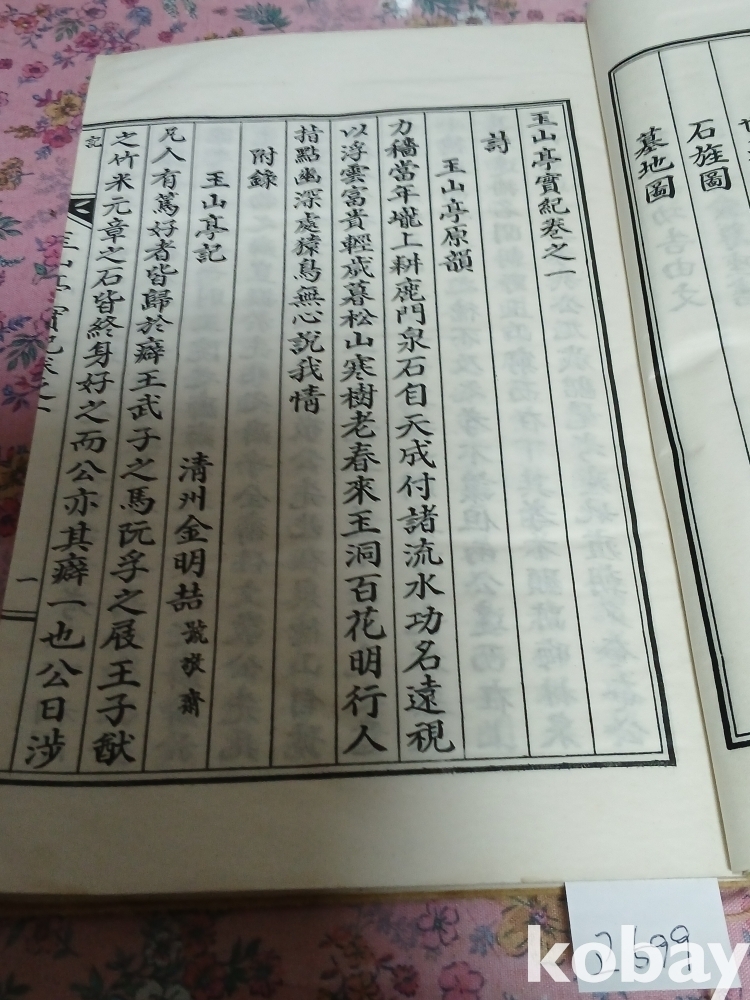 石旌圖
墓地圖
玉山亭實紀卷之一
詩
玉山亭原韻
力穡當年壠上耕鹿門泉石自天成付諸流水功名遠視
以浮雲富貴輕歲暮松山寒樹老春來玉洞百花明行人
指點幽深處猿鳥無心說我情
附錄
玉山亭記
清州金明喆號欽齋
凡人有篤好者皆歸於癖王武子之馬阮孚之屐王子猷
之竹米元章之石皆終身好之而公亦其癖一也公日涉
記
玉山亭實紀卷之一
一
2699
kobay